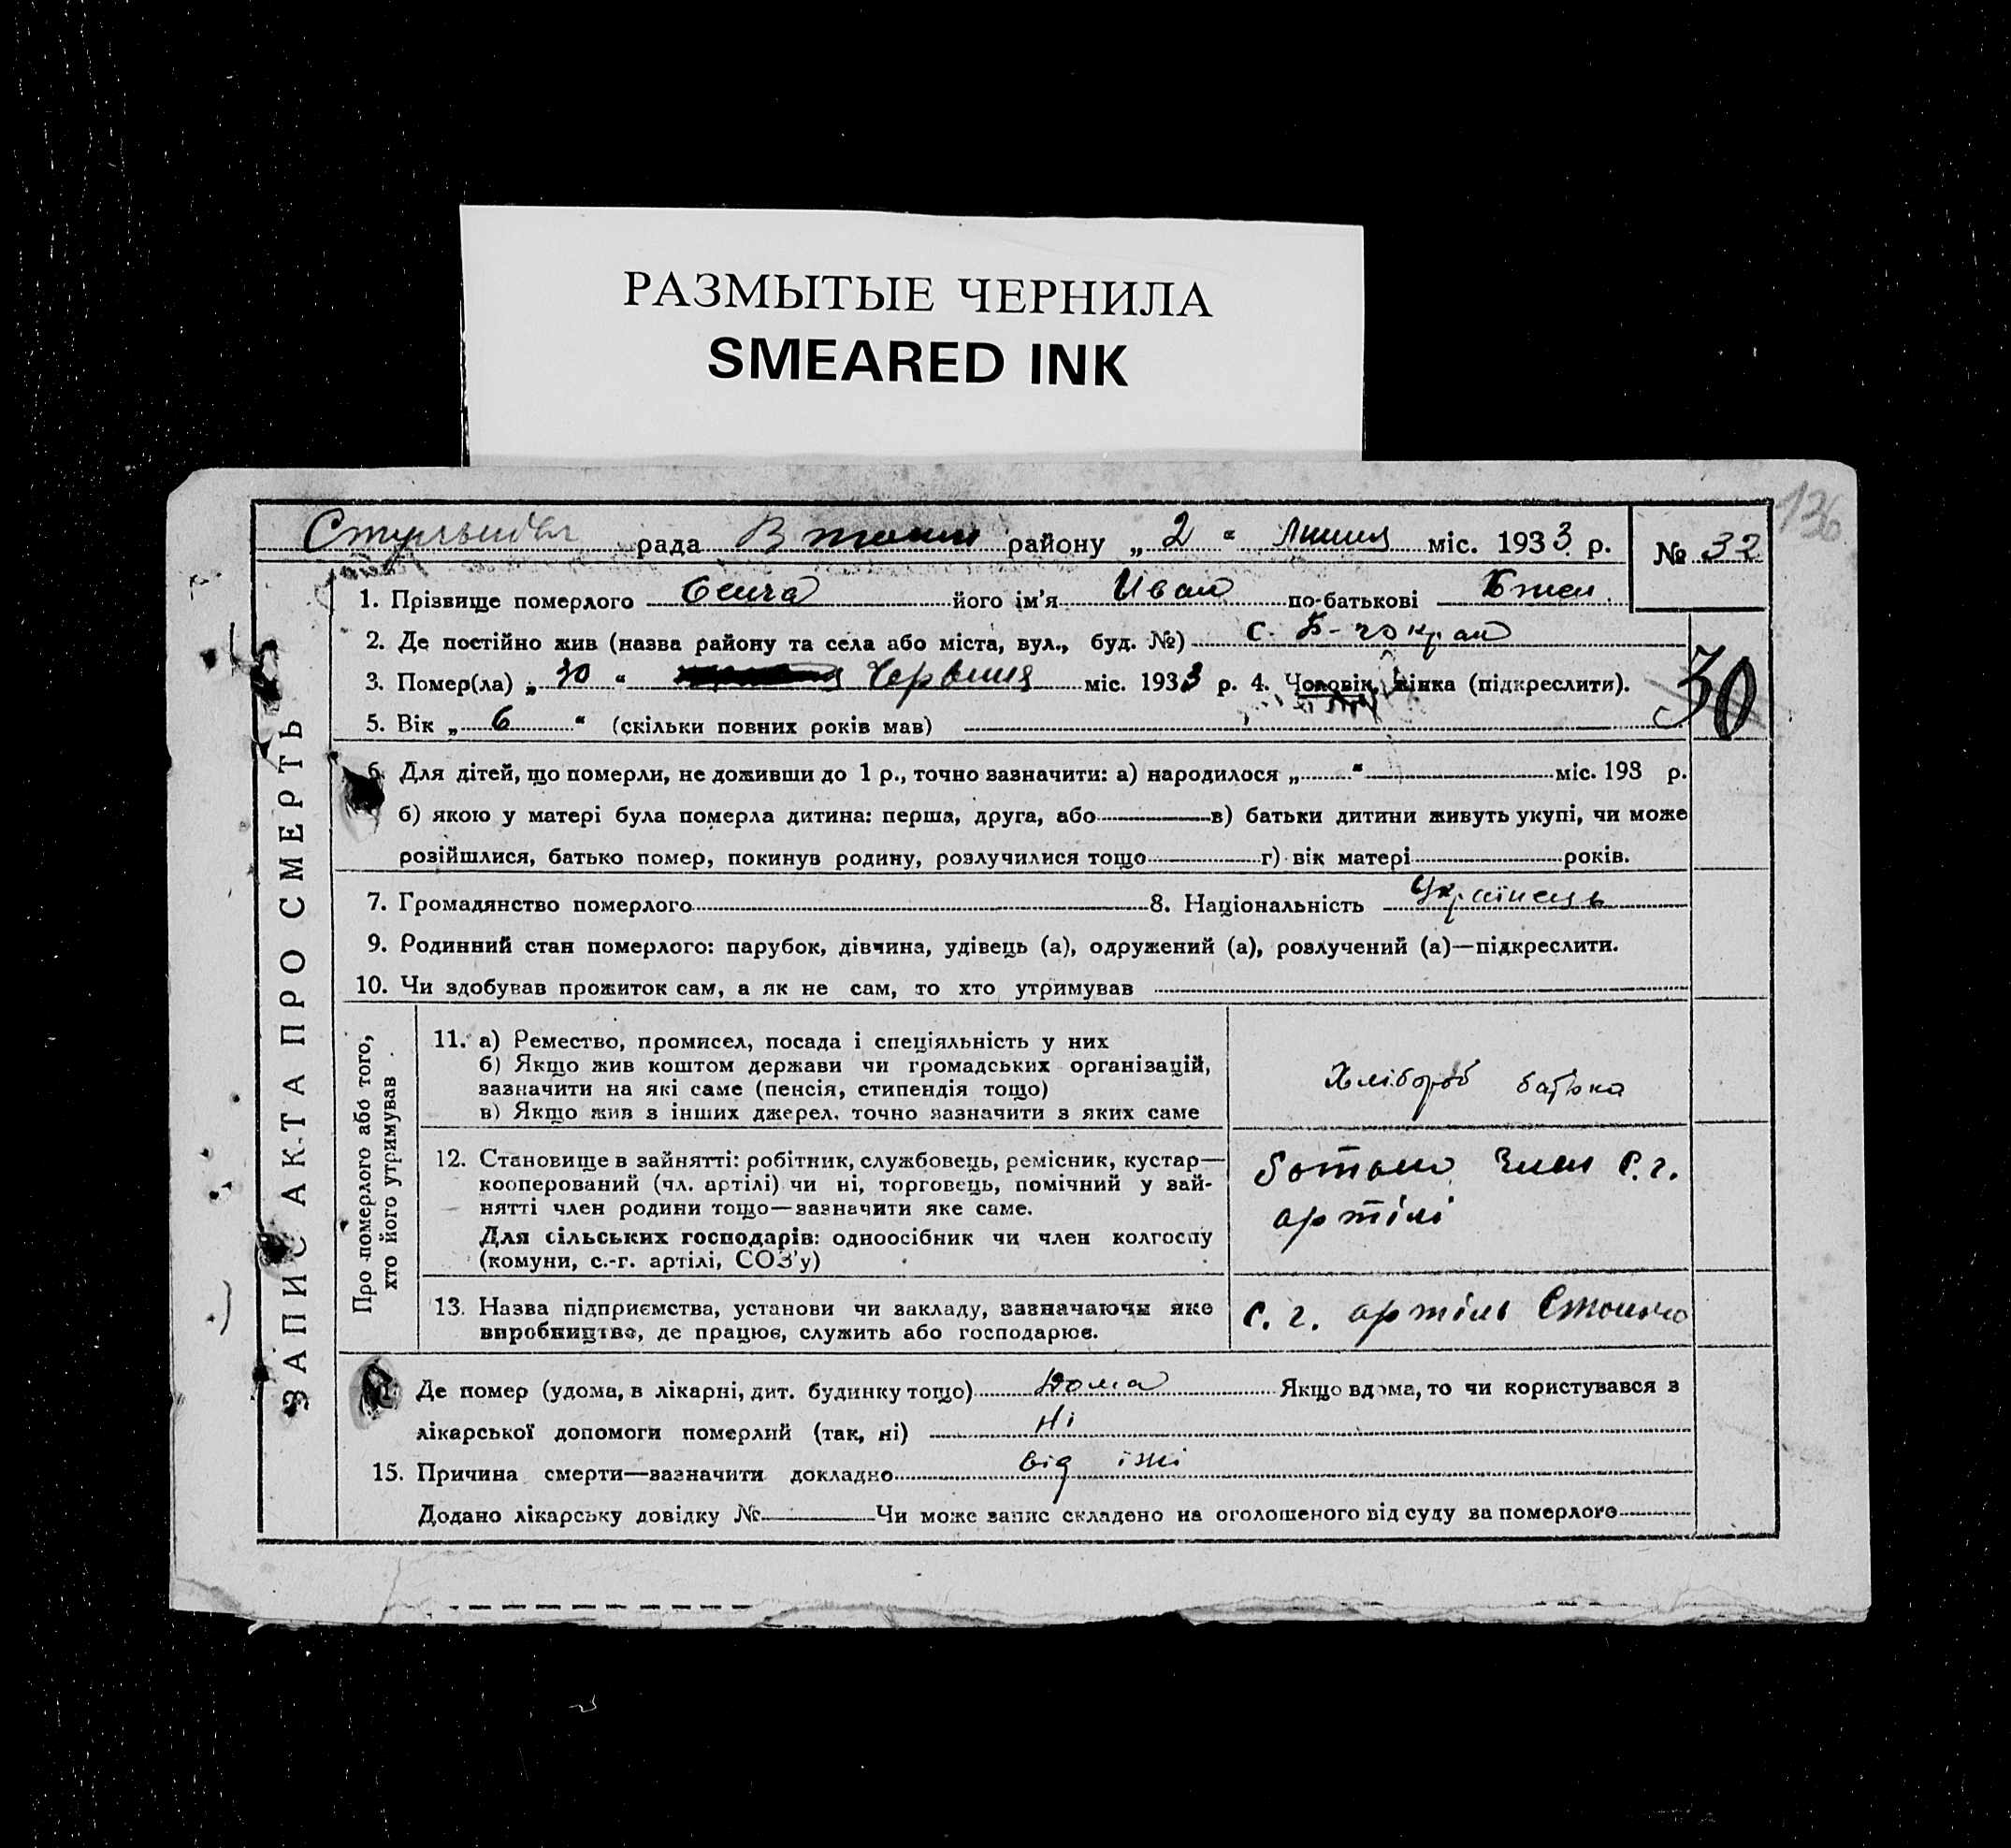 РАЗМЫТЫЕ ЧЕРНИЛА
SMEARED INK
136
рада районy „ 2 “ Липня міс. 1933 р.
№ 32
1. Прізвище померлого його ім’я Иван по-батькові
2. Де постійно жив (назва району та села або міста, вул., буд. №) с.
3. Помер(ла) „ 30 “ Червния міс. 1933 р. 4. Чоловік, жінка (підкреслити).
30
5. Вік „ 6 “ (скільки повних років мав)
6. Для дітей, що померли, не доживши до 1 р., точно зазначити: а) народилося „ “ міс. 193 р.
б) якою у матері була померла дитина: перша, друга, або в) батьки дитини живуть укупі, чи може
розійшлися, батько помер, покинув родину, розлучилися тощо г) вік матері років.
7. Громадянство померлого 8. Національність Українець
9. Родинний стан померлого: парубок, дівчина, удівець (а), одружений (а), розлучений (а)—підкреслити.
10. Чи здобував прожиток сам, а як не сам, то хто утримував
ЗАПИС АКТА ПРО СМЕРТЬ
Про померлого або того,
хто його утримував
11. а) Ремество, промисел, посада і спеціяльність у них
б) Якщо жив коштом держави чи громадських організацій,
зазначити на які саме (пенсія, стипендія тощо)
в) Якщо жив з інших джерел, точно зазначити з яких саме
Хлібороб батька
12. Становище в зайнятті: робітник, службовець, ремісник, кустар—
кооперований (чл. артілі) чи ні, торговець, помічний у зай-
нятті член родини тощо—зазначити яке саме.
Для сільських господарів: одноосібник чи член колгоспу
(комуни, с.-г. артілі, СОЗ’у)
Член с. г.
артілі
13. Назва підприємства, установи чи закладу, зазначаючи яке
виробництво, де працює, служить або господарює.
с. г. артіль
Де помер (удома, в лікарні, дит. будинку тощо) Дома Якщо вдома, то чи користувався з
лікарської допомоги померлий (так, ні) Ні
15. Причина смерти—зазначити докладно від їжі
Додано лікарську довідку № Чи може запис складено на оголошеного від суду за померлого